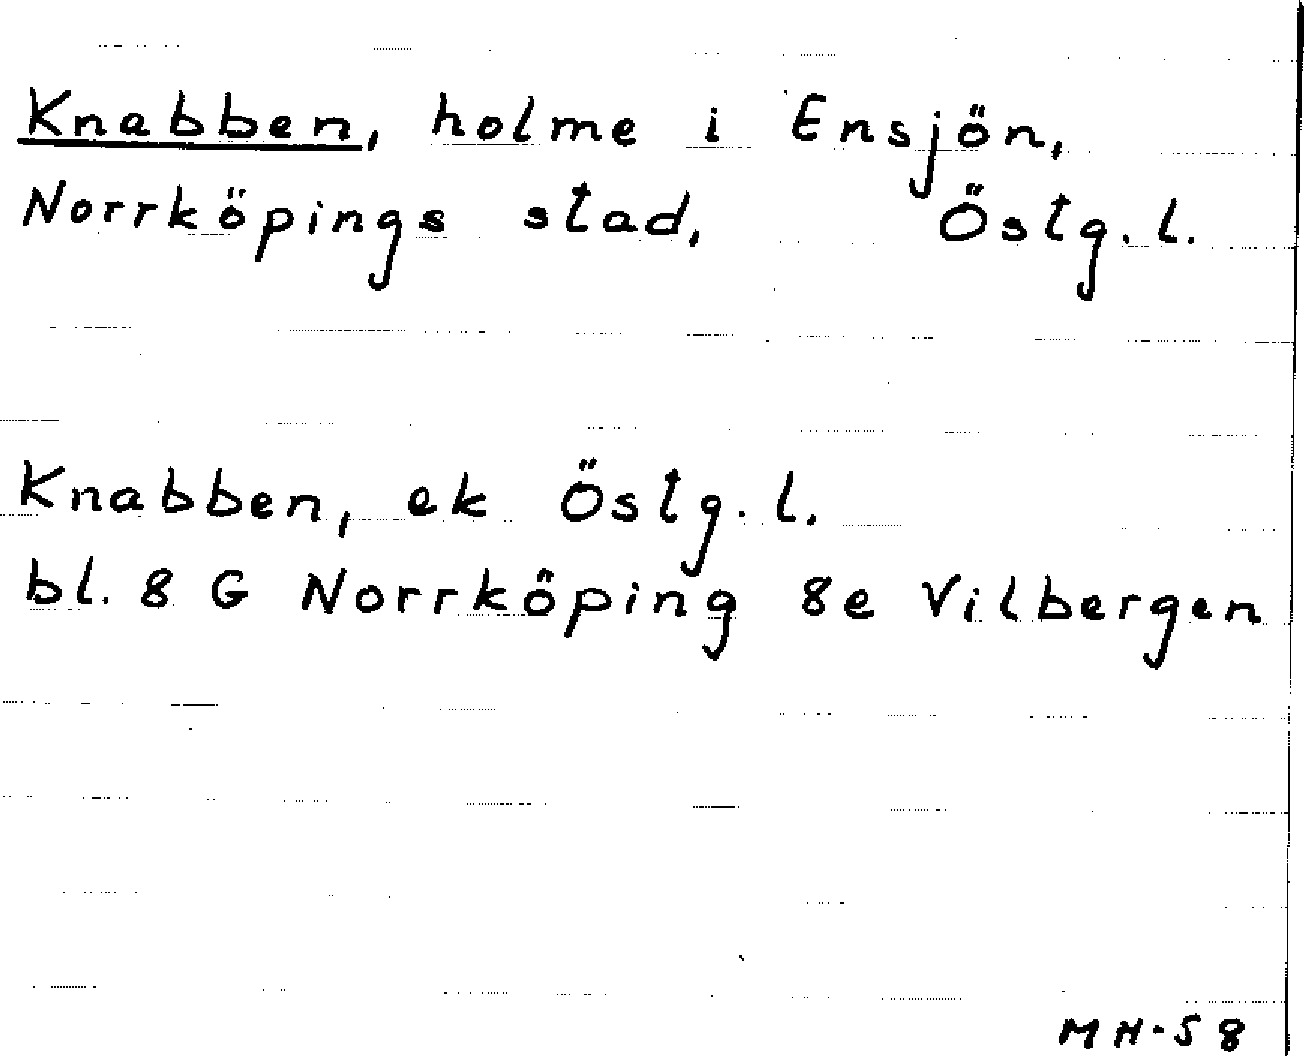 Knabben, holme i Ensjön,
Norrköpings stad, Östg. l.
Knabben, ek Östg. l.
bl. 8 G Norrköping 8e Vilbergen
MH-58